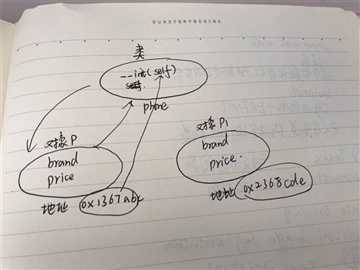 类
--int(self)
phone
对像P
brand
price
地址 0x1367abc
对像P1
brand
price.
地址 0x2368cde